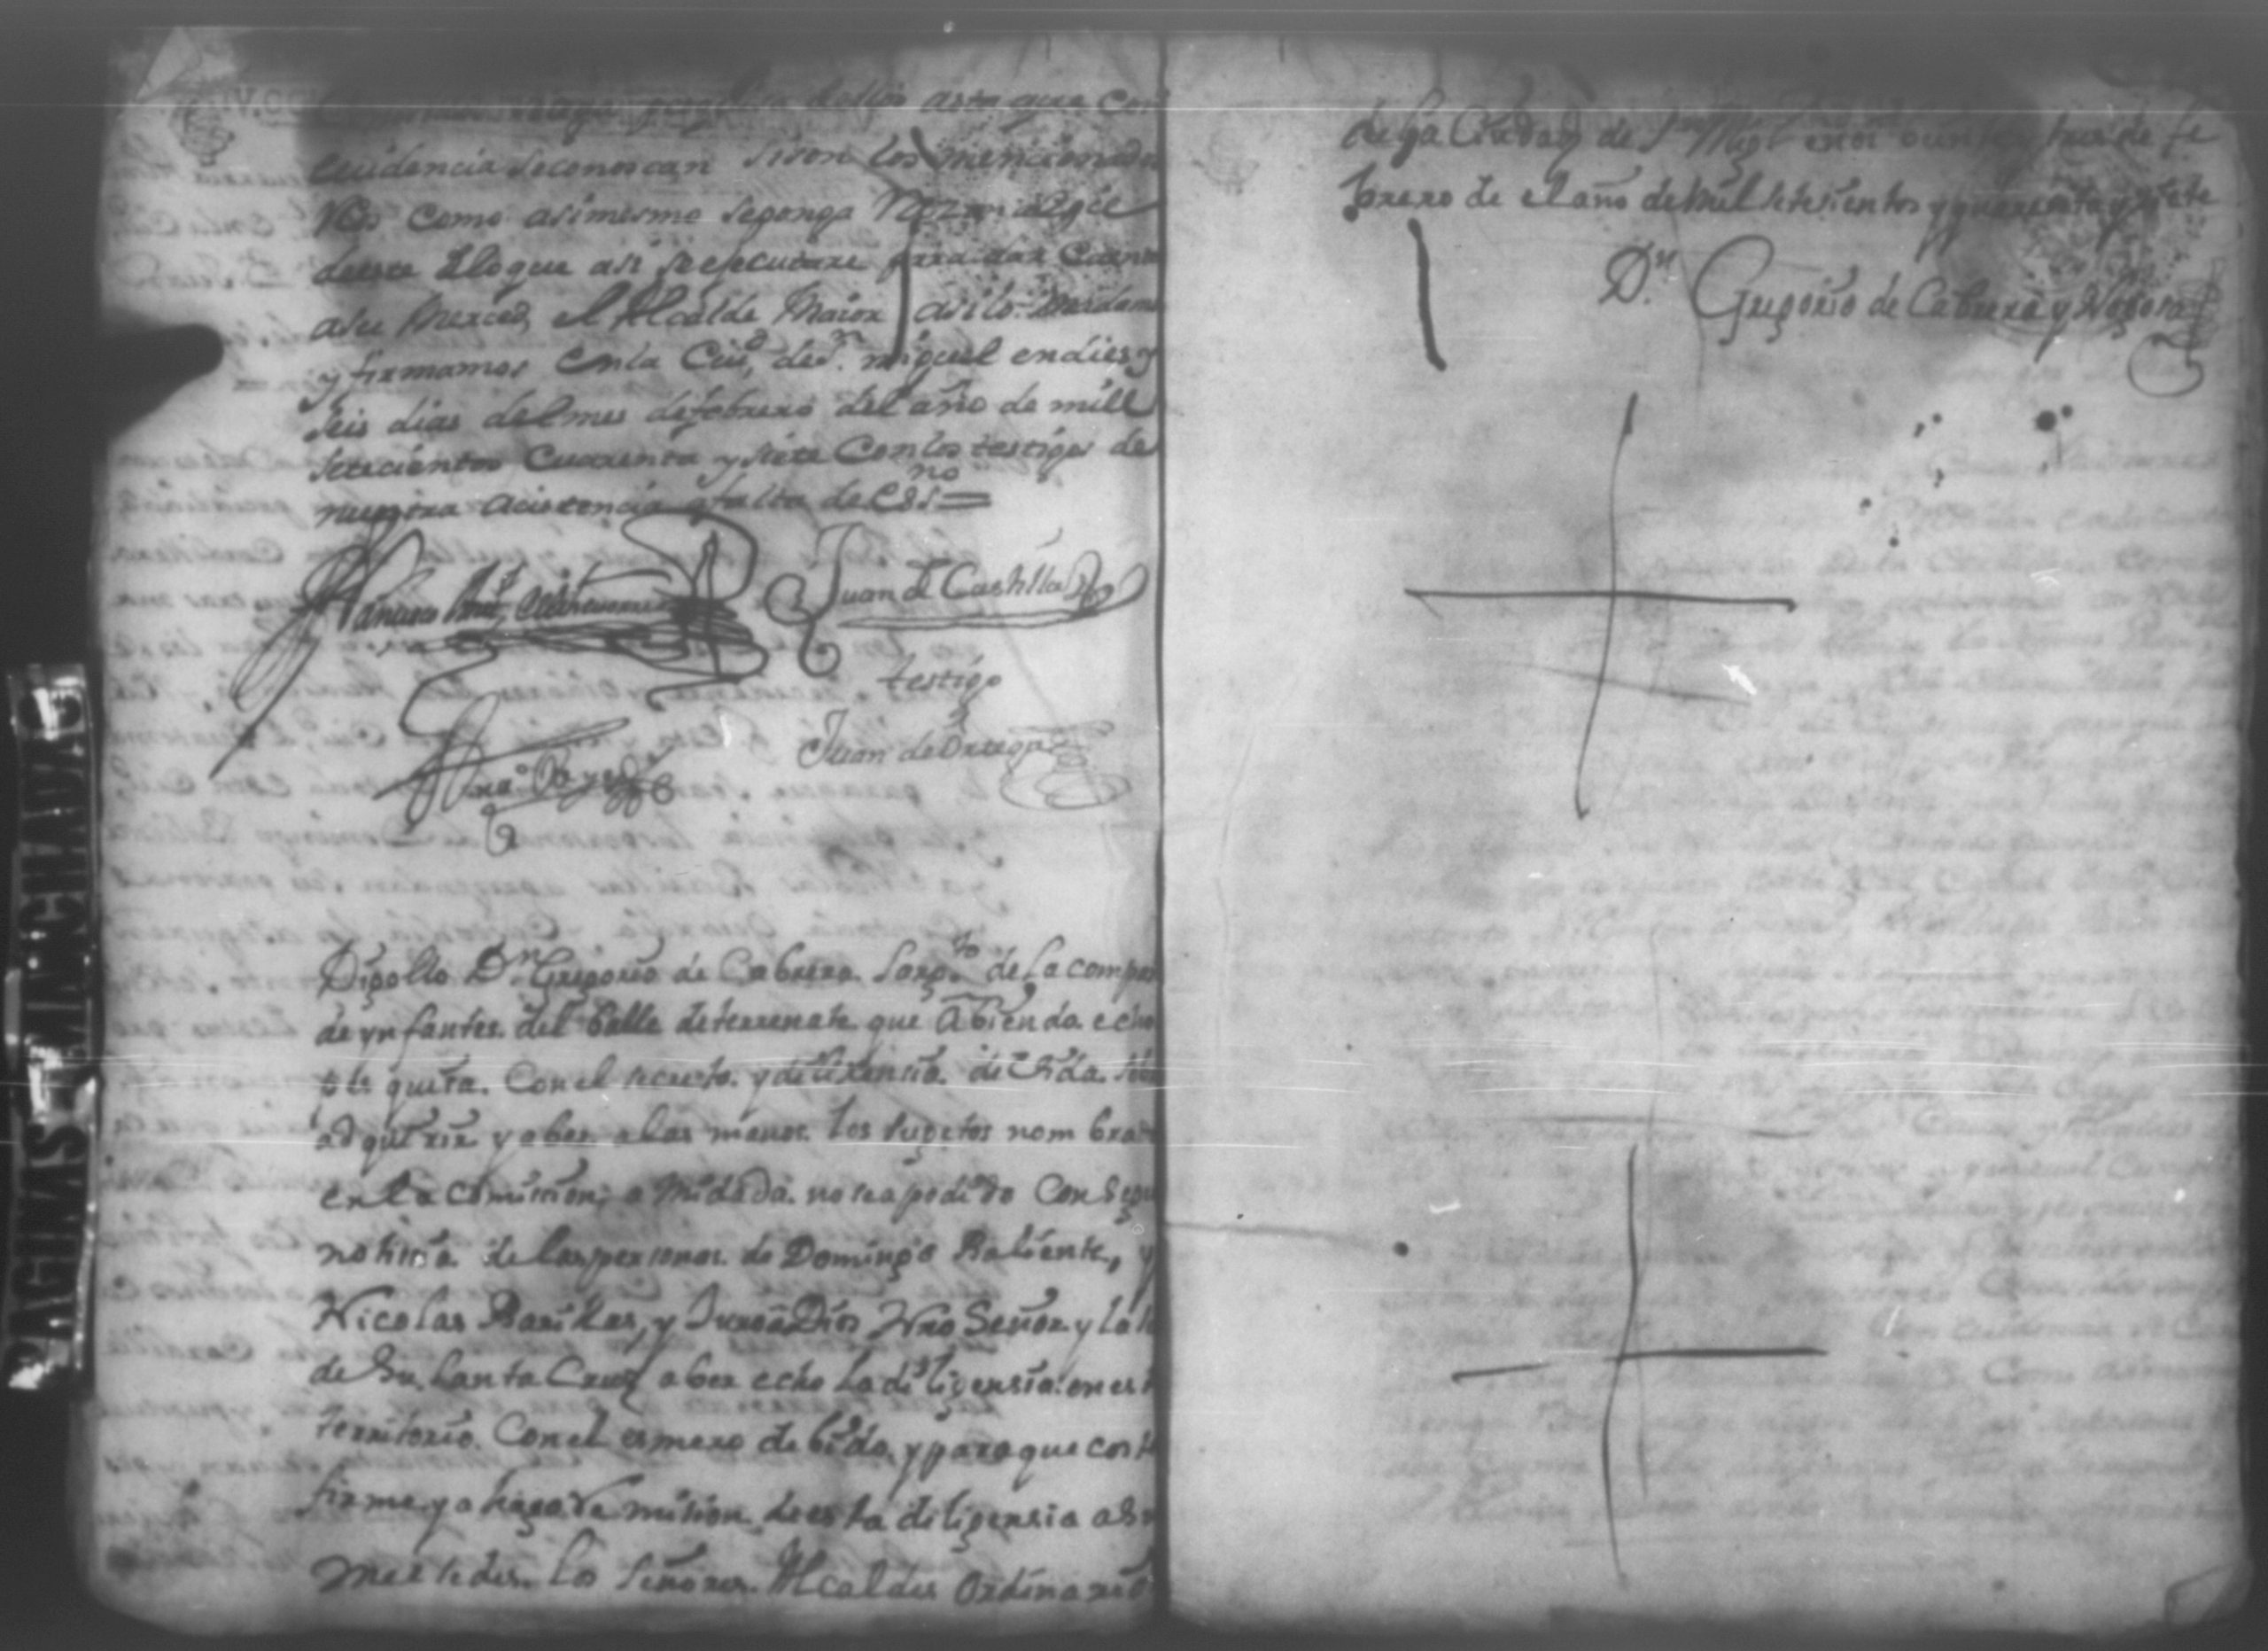 dellos asta que con
evidencia se conoscan si son los mencionados
reos como asimesmo se ponga
de este I lo que asi se efecutare para dar Cuenta
a su Merced, el Alcalde Maior asi lo. Mandamos
y firmamos en la Ciud. de Sn. miguel en dies y
seis dias del mes de febrero del año de mill
setecientos Cuarenta y siete Con los testigos de
nuestra acistencia y falta de Essno =
Juan de Castilla
testigo
Juan de Ortega
Digo Yo Dn. Gregorio de Cabrera. Sargto. de la compa
de ynfantes. del balle de terrenate que Abiendo echo
pesquesa. Con el secreto. y delixensia. de
adquerir y aber a las manos. Los sugetos nombra
en la comission, a mi dada. no se a podido Consegu
notisia de las personas. de Domingo Baliente, y
Nicolas Barilas, y Juro a Dios Nro Señor y la
de Su Santa Cruz aber echo La diligensia. en es
territorio. Con el esmero debido, y para que coste
firme y a hago Remision. de esta diligensia a Sus
mersedes. Los Señores. Alcaldes Ordinario
de la Ciudad de San Migl en beinte y tres de fe
brero de el año de mil setesientos y quarenta y siete
Dn. Gregorio de Cabrera y
PAGINAS MANCHADAS